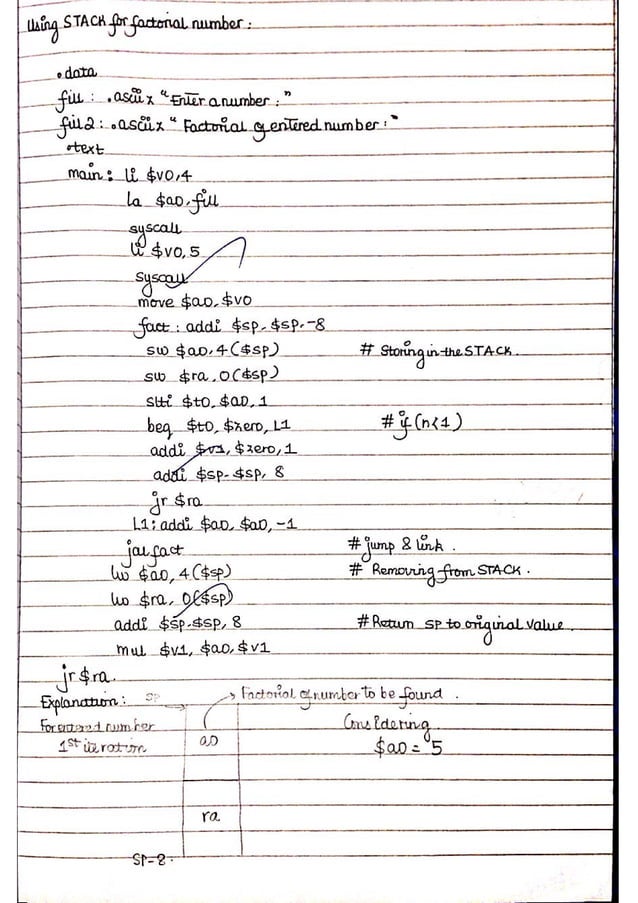 Using STACK for factorial number:
.data
fill: .asciiz "Enter a number:"
fill2: .asciiz "Factorial of entered number:"
.text
main: li $v0,4
la $a0,fill
syscall
li $v0,5
syscall
move $a0,$v0
fact: addi $sp,$sp,-8
sw $a0,4($sp) # Storing in the STACK.
sw $ra,0($sp)
slti $t0,$a0,1
beq $t0,$zero,L1 # if(n<1)
addi $v1,$zero,1
addi $sp,$sp,8
jr $ra
L1: addi $a0,$a0,-1
jal fact # jump & link.
lw $a0,4($sp) # Removing from STACK.
lw $ra,0($sp)
addi $sp,$sp,8 # Return SP to original value.
mul $v1,$a0,$v1
jr $ra.
Explanation: SP → Factorial of number to be found.
For entered number Considering
1st iteration a0 $a0 = 5
ra
SP-8.